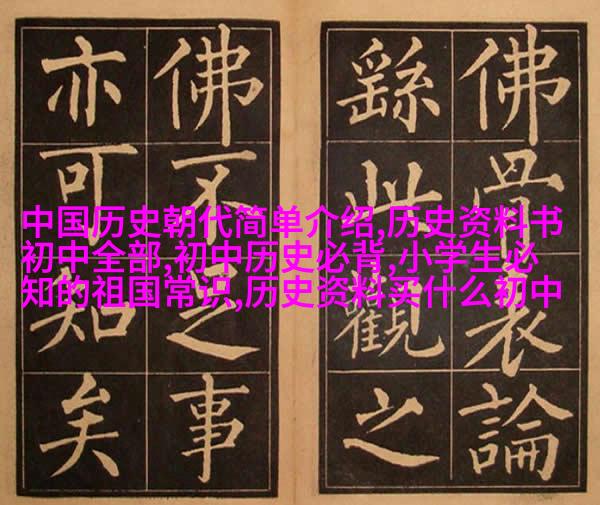 中国历史朝代简单介绍,历史资料书
初中全部,初中历史必背,小学生必
知的祖国常识,历史资料买什么初中
佛骨表論
繇此觀之
佛不足事
亦可知矣